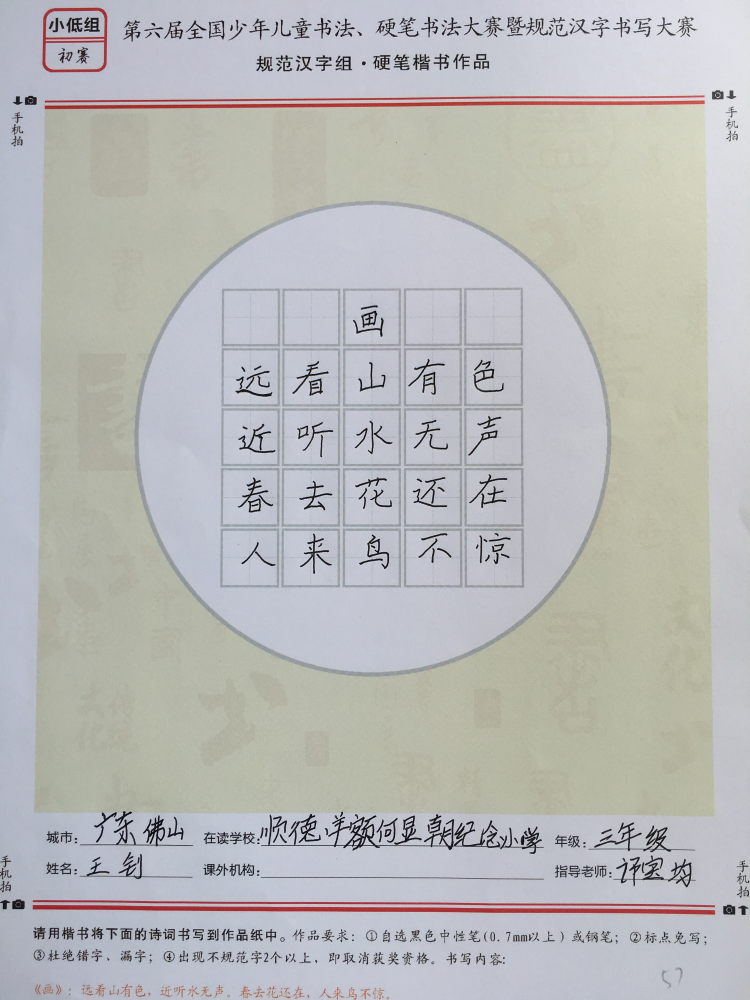 小低组
初赛
第六届全国少年儿童书法、硬笔书法大赛暨规范汉字书写大赛
规范汉字组·硬笔楷书作品
手机拍
手机拍
画
远看山有色
近听水无声
春去花还在
人来鸟不惊
城市：广东佛山 在读学校：顺德羊额何显朝纪念小学 年级：三年级
姓名：王钊 课外机构： 指导老师：
手机拍
手机拍
请用楷书将下面的诗词书写到作品纸中。作品要求：①自选黑色中性笔(0.7mm以上)或钢笔；②标点免写；
③杜绝错字、漏字；④出现不规范字2个以上，即取消获奖资格。书写内容：
《画》：远看山有色，近听水无声。春去花还在，人来鸟不惊。
57